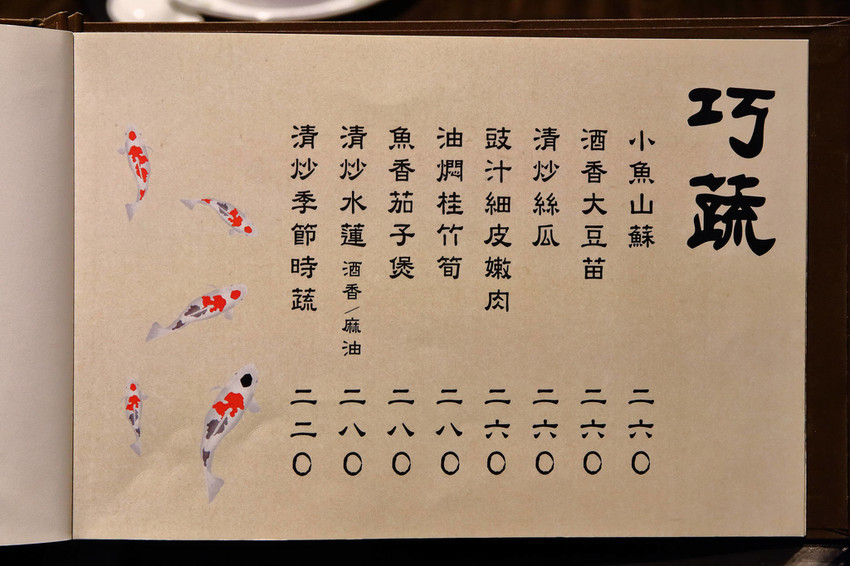 巧蔬
小魚山蘇 二六〇
酒香大豆苗 二六〇
清炒絲瓜 二六〇
豉汁細皮嫩肉 二六〇
油燜桂竹筍 二八〇
魚香茄子煲 二八〇
清炒水蓮 酒香/麻油 二八〇
清炒季節時蔬 二二〇